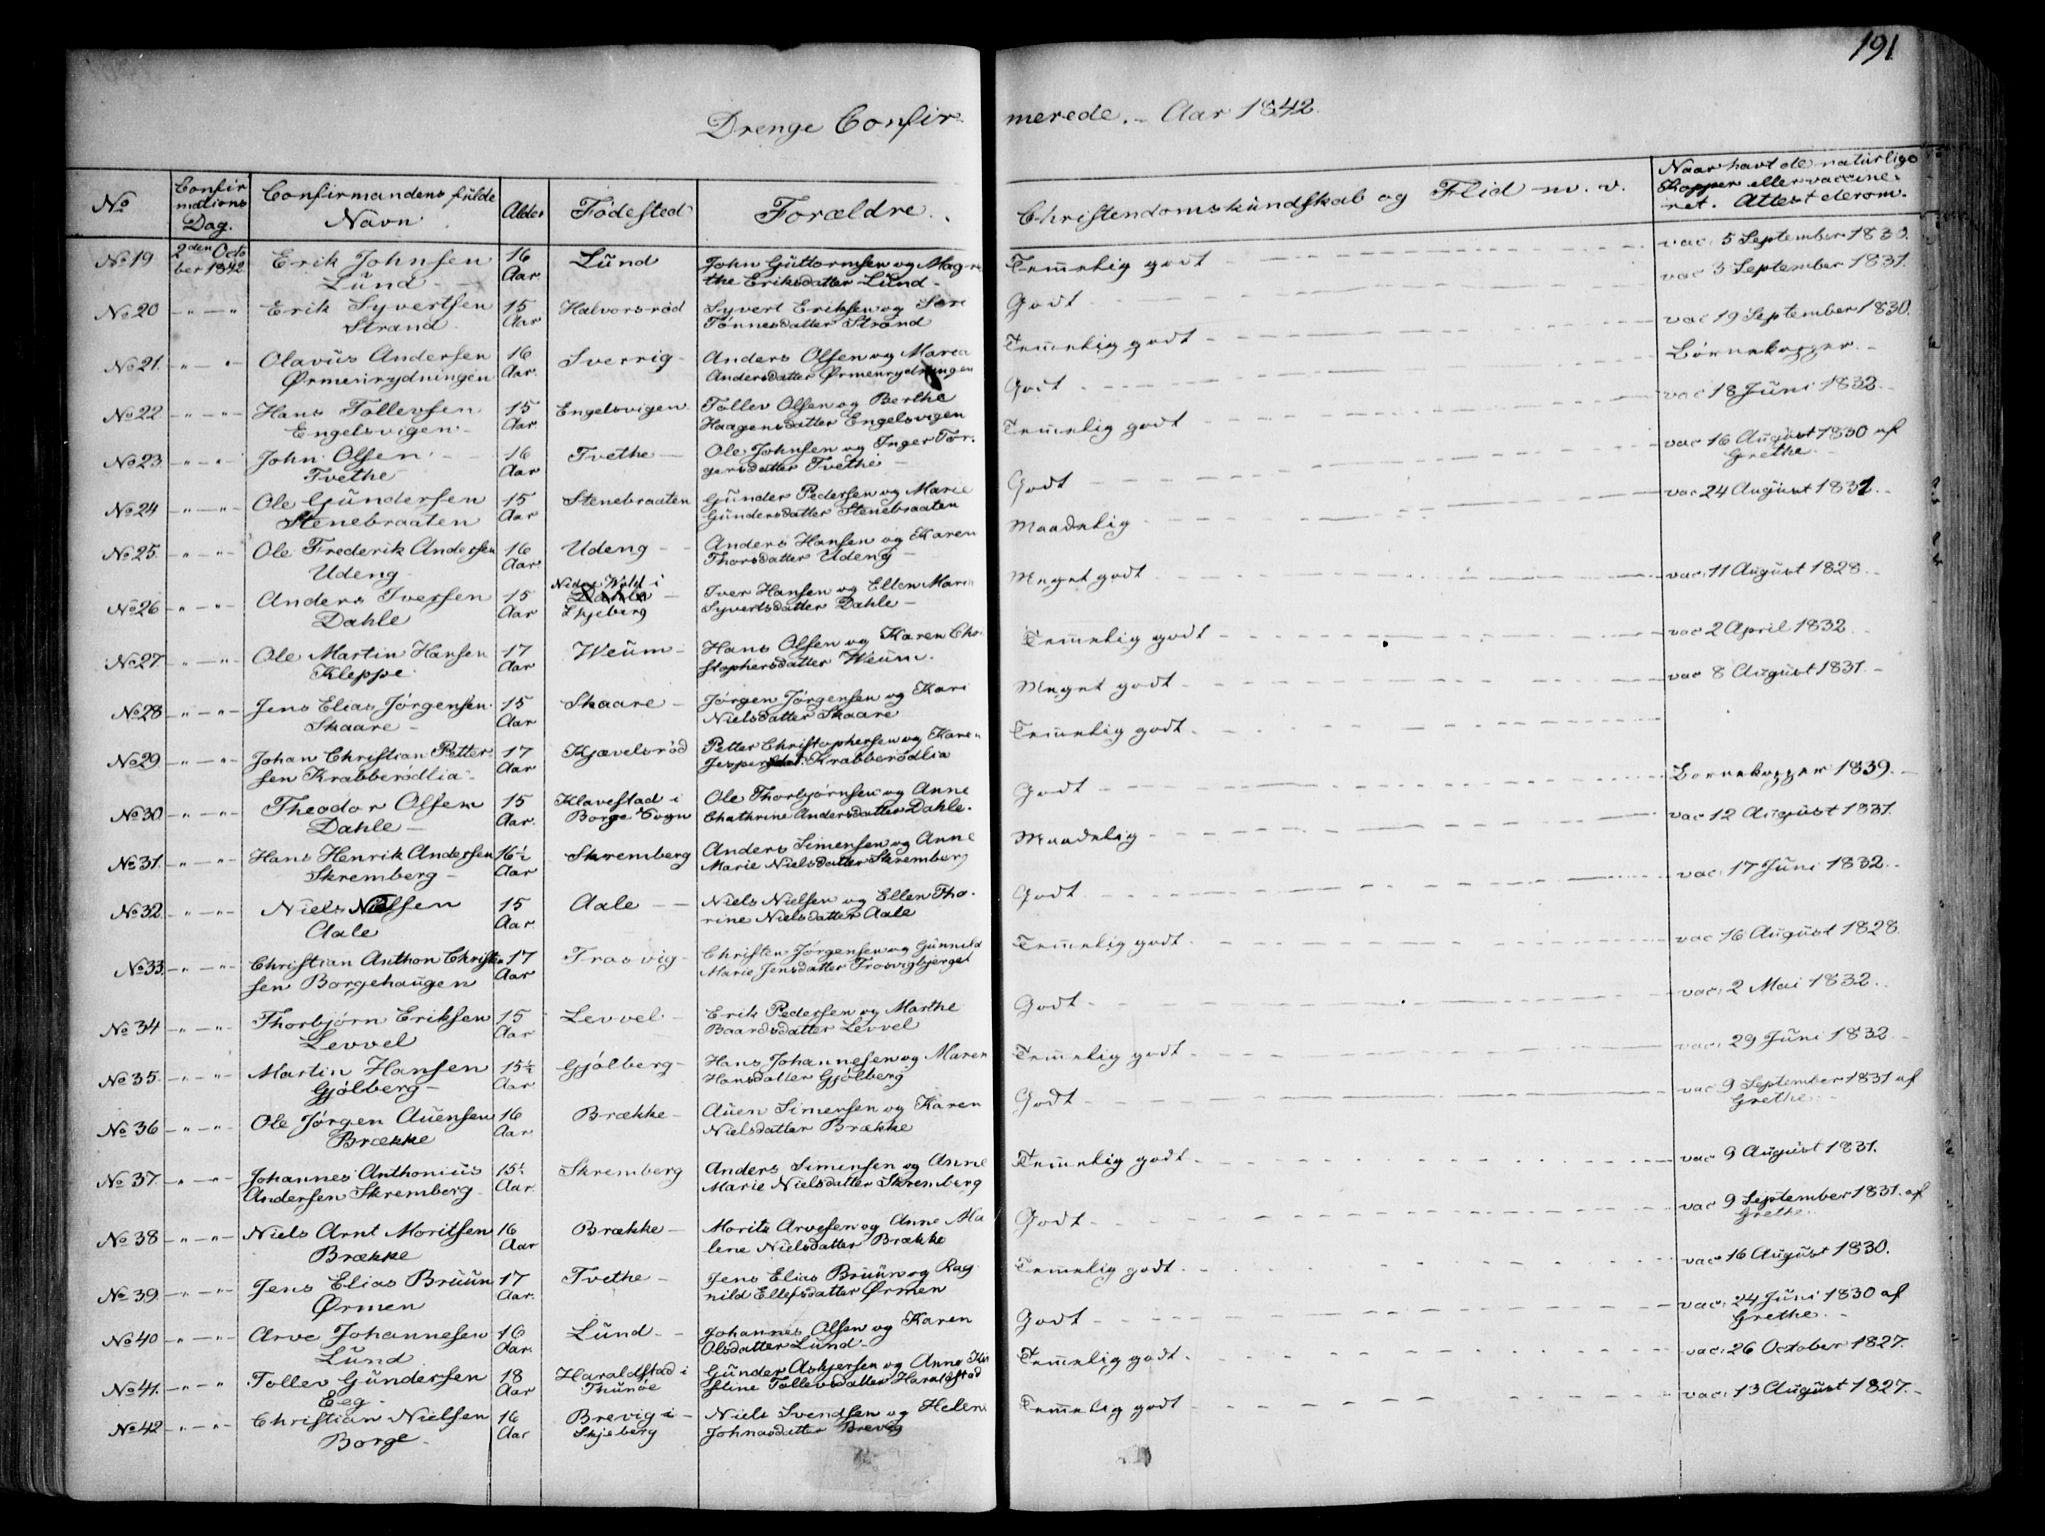 191
Drenge Confirmerede. - Aar 1842.
No | Confirmations Dag. | Confirmandens fulde Navn | Alder | Fødested | Forældre. | Christendomskundskab og Flid m. v. | Naar havt de naturlige Kopper eller vaccineret. Attest derom.
No 19 | 2den October 1842 | Erik Johnsen Lund | 16 Aar | Lund | John Guttormsen og Magrethe Eriksdatter Lund | Temmelig godt | vac: 5 September 1830.
No 20 | " — " | Erik Syvertsen Strand | 15 Aar | Halvorsrød | Syvert Eriksen og Tønnesdatter Strand | Godt | vac 3 September 1831.
No 21. | " — " | Olavus Andersen Ørmenrydningen | 16 Aar. | Sverrig | Anders Olsen og Maren Andersdatter Ørmenrydningen | Temmelig godt | vac 19 September 1830.
No 22 | " — " | Hans Tollevsen Engelsvigen | 15 Aar | Engelsvigen | Tollev Olsen og Berthe Haagensdatter Engelsvigen | Godt | Børnekopper.
No 23 | " — " | John Olsen Tvethe | 16 Aar | Tvethe | Ole Johnsen og Inger Torgersdatter Tvethe | Temmelig godt | vac 18 Juni 1832
No 24 | " — " | Ole Gundersen Stenebraaten | 15 Aar | Stenebraaten | Gunder Pedersen og Marie Gundersdatter Stenebraaten | Godt | vac 16 August 1830 af Grethe.
No 25. | " — " | Ole Frederik Andersen Udeng | 16 Aar | Udeng | Anders Hansen og Karen Thorsdatter Udeng | Maadelig | vac 24 August 1831.
No 26 | " — " | Anders Iversen Dahle | 15 Aar | Nider Wold i Skjeberg | Iver Hansen og Ellen Maria Syvertsdatter Dahle | Meget godt | vac: 11 August 1828
No 27 | " — " | Ole Martin Hansen Kleppe | 17 Aar | Weum | Hans Olsen og Karen Christophersdatter Weum. | Temmelig godt | vac 2 April 1832
No 28 | " — " | Jens Elias Jørgensen Skaare | 15 Aar | Skaare | Jørgen Jørgensen og Kari Nielsdatter Skaare | Meget godt | vac 8 August 1831
No 29 | " — " | Johan Christian Pettersen Krabberødlia | 17 Aar | Kjævelsrød | Petter Christophersen og Karen Jespersdat. Krabberødlia | Temmelig godt.
No 30 | " — " | Theodor Olsen Dahle | 15 Aar. | Klavestad i Borge Sogn | Ole Thorbjørnsen og Anne Chathrine Andersdatter Dahle. | Godt | Børnekopper 1839.
No 31. | " — " | Hans Henrik Andersen Skremberg | 16½ Aar | Skremberg | Anders Simensen og Anne Marie Nielsdatter Skremberg | Maadelig | vac 12 August 1831.
No 32 | " — " | Niels Nielsen Aale | 15 Aar. | Aale | Niels Nielsen og Ellen Thorine Nielsdatter Aale | Godt | vac: 17 Juni 1832.
No 33. | " — " | Christian Anthon Christensen Borgehaugen | 17 Aar | Trosvig | Christen Jørgensen og Gunnild Marie Jensdatter Trosvigbjerget | Temmelig godt. | vac 16 August 1828
No 34 | " — " | Thorbjørn Eriksen Levvel | 15 Aar | Levvel | Erik Pedersen og Marthe Baardsdatter Levvel | Godt | vac: 2 Mai 1832.
No 35. | " — " | Martin Hansen Gjølberg | 15½ Aar | Gjølberg | Hans Johannesen og Maren Hansdatter Gjølberg | Temmelig godt | vac: 29 Juni 1832
No 36 | " — " | Ole Jørgen Auensen Brække | 16 Aar | Brække | Auen Simensen og Karen Nielsdatter Brække | Godt | vac 9 September 1831 af Grethe.
No 37. | " — " | Johannes Anthonius Andersen Skremberg | 15½ Aar. | Skremberg | Anders Simensen og Anne Marie Nielsdatter Skremberg | Temmelig godt | vac 9 August 1831.
No 38 | " — " | Niels Arnt Moritsen Brække | 16 Aar | Brække | Morits Arvesen og Anne Malene Nielsdatter Brække | Godt | vac 9 September 1831. af Grethe.
No 39. | " — " | Jens Elias Bruun Ørmen | 17 Aar. | Tvethe | Jens Elias Bruun og Ragnild Ellefsdatter Ørmen | Temmelig godt. | vac 16 August 1830.
No 40 | " — " | Arve Johannesen Lund | 16 Aar. | Lund | Johannes Olsen og Karen Olsdatter Lund | Godt | vac: 24 Juni 1830 af Grethe.
No 41. | " — " | Tollev Gundersen Eeg. | 18 Aar | Haraldstad i Thunøe | Gunder Asbjersen og Anne Kirstine Tollevsdatter Haraldstad | Temmelig godt. | vac: 26 October 1827.
No 42 | " — " | Christian Nielsen Borge | 16 Aar | Brevig i Skjeberg | Niels Svendsen og Helene Johnasdatter Brevig | Temmelig godt | vac: 13 August 1827.